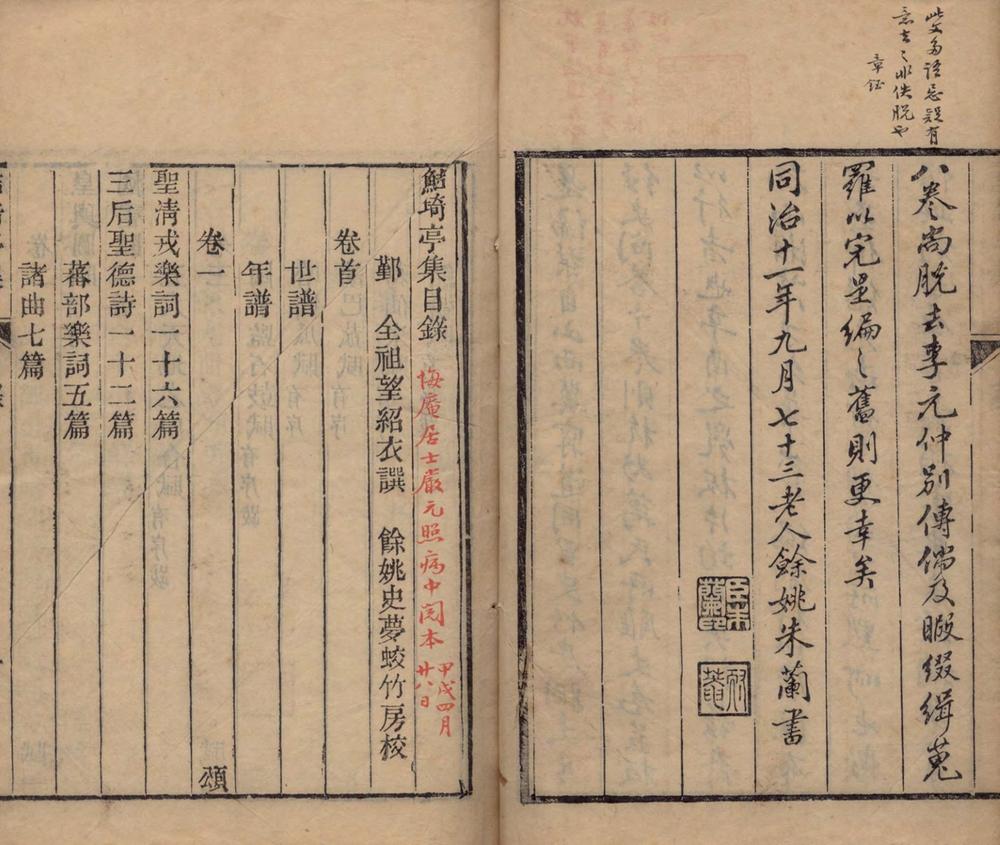 此文多語忌疑有
意去之非佚脫也
章鈺
八卷尚脫去李元仲別傳倘及暇綴緝蒐
羅以完是編之舊則更幸矣
同治十一年九月七十三老人餘姚朱蘭書
臣朱蘭印
鮚埼亭集目錄 悔庵居士嚴元照病中閱本 甲戌四月廿八日
鄞 全祖望紹衣譔 餘姚史夢蛟竹房校
卷首
世譜
年譜
卷一 頌
聖清戎樂詞一十六篇
三后聖德詩一十二篇
蕃部樂詞五篇
諸曲七篇